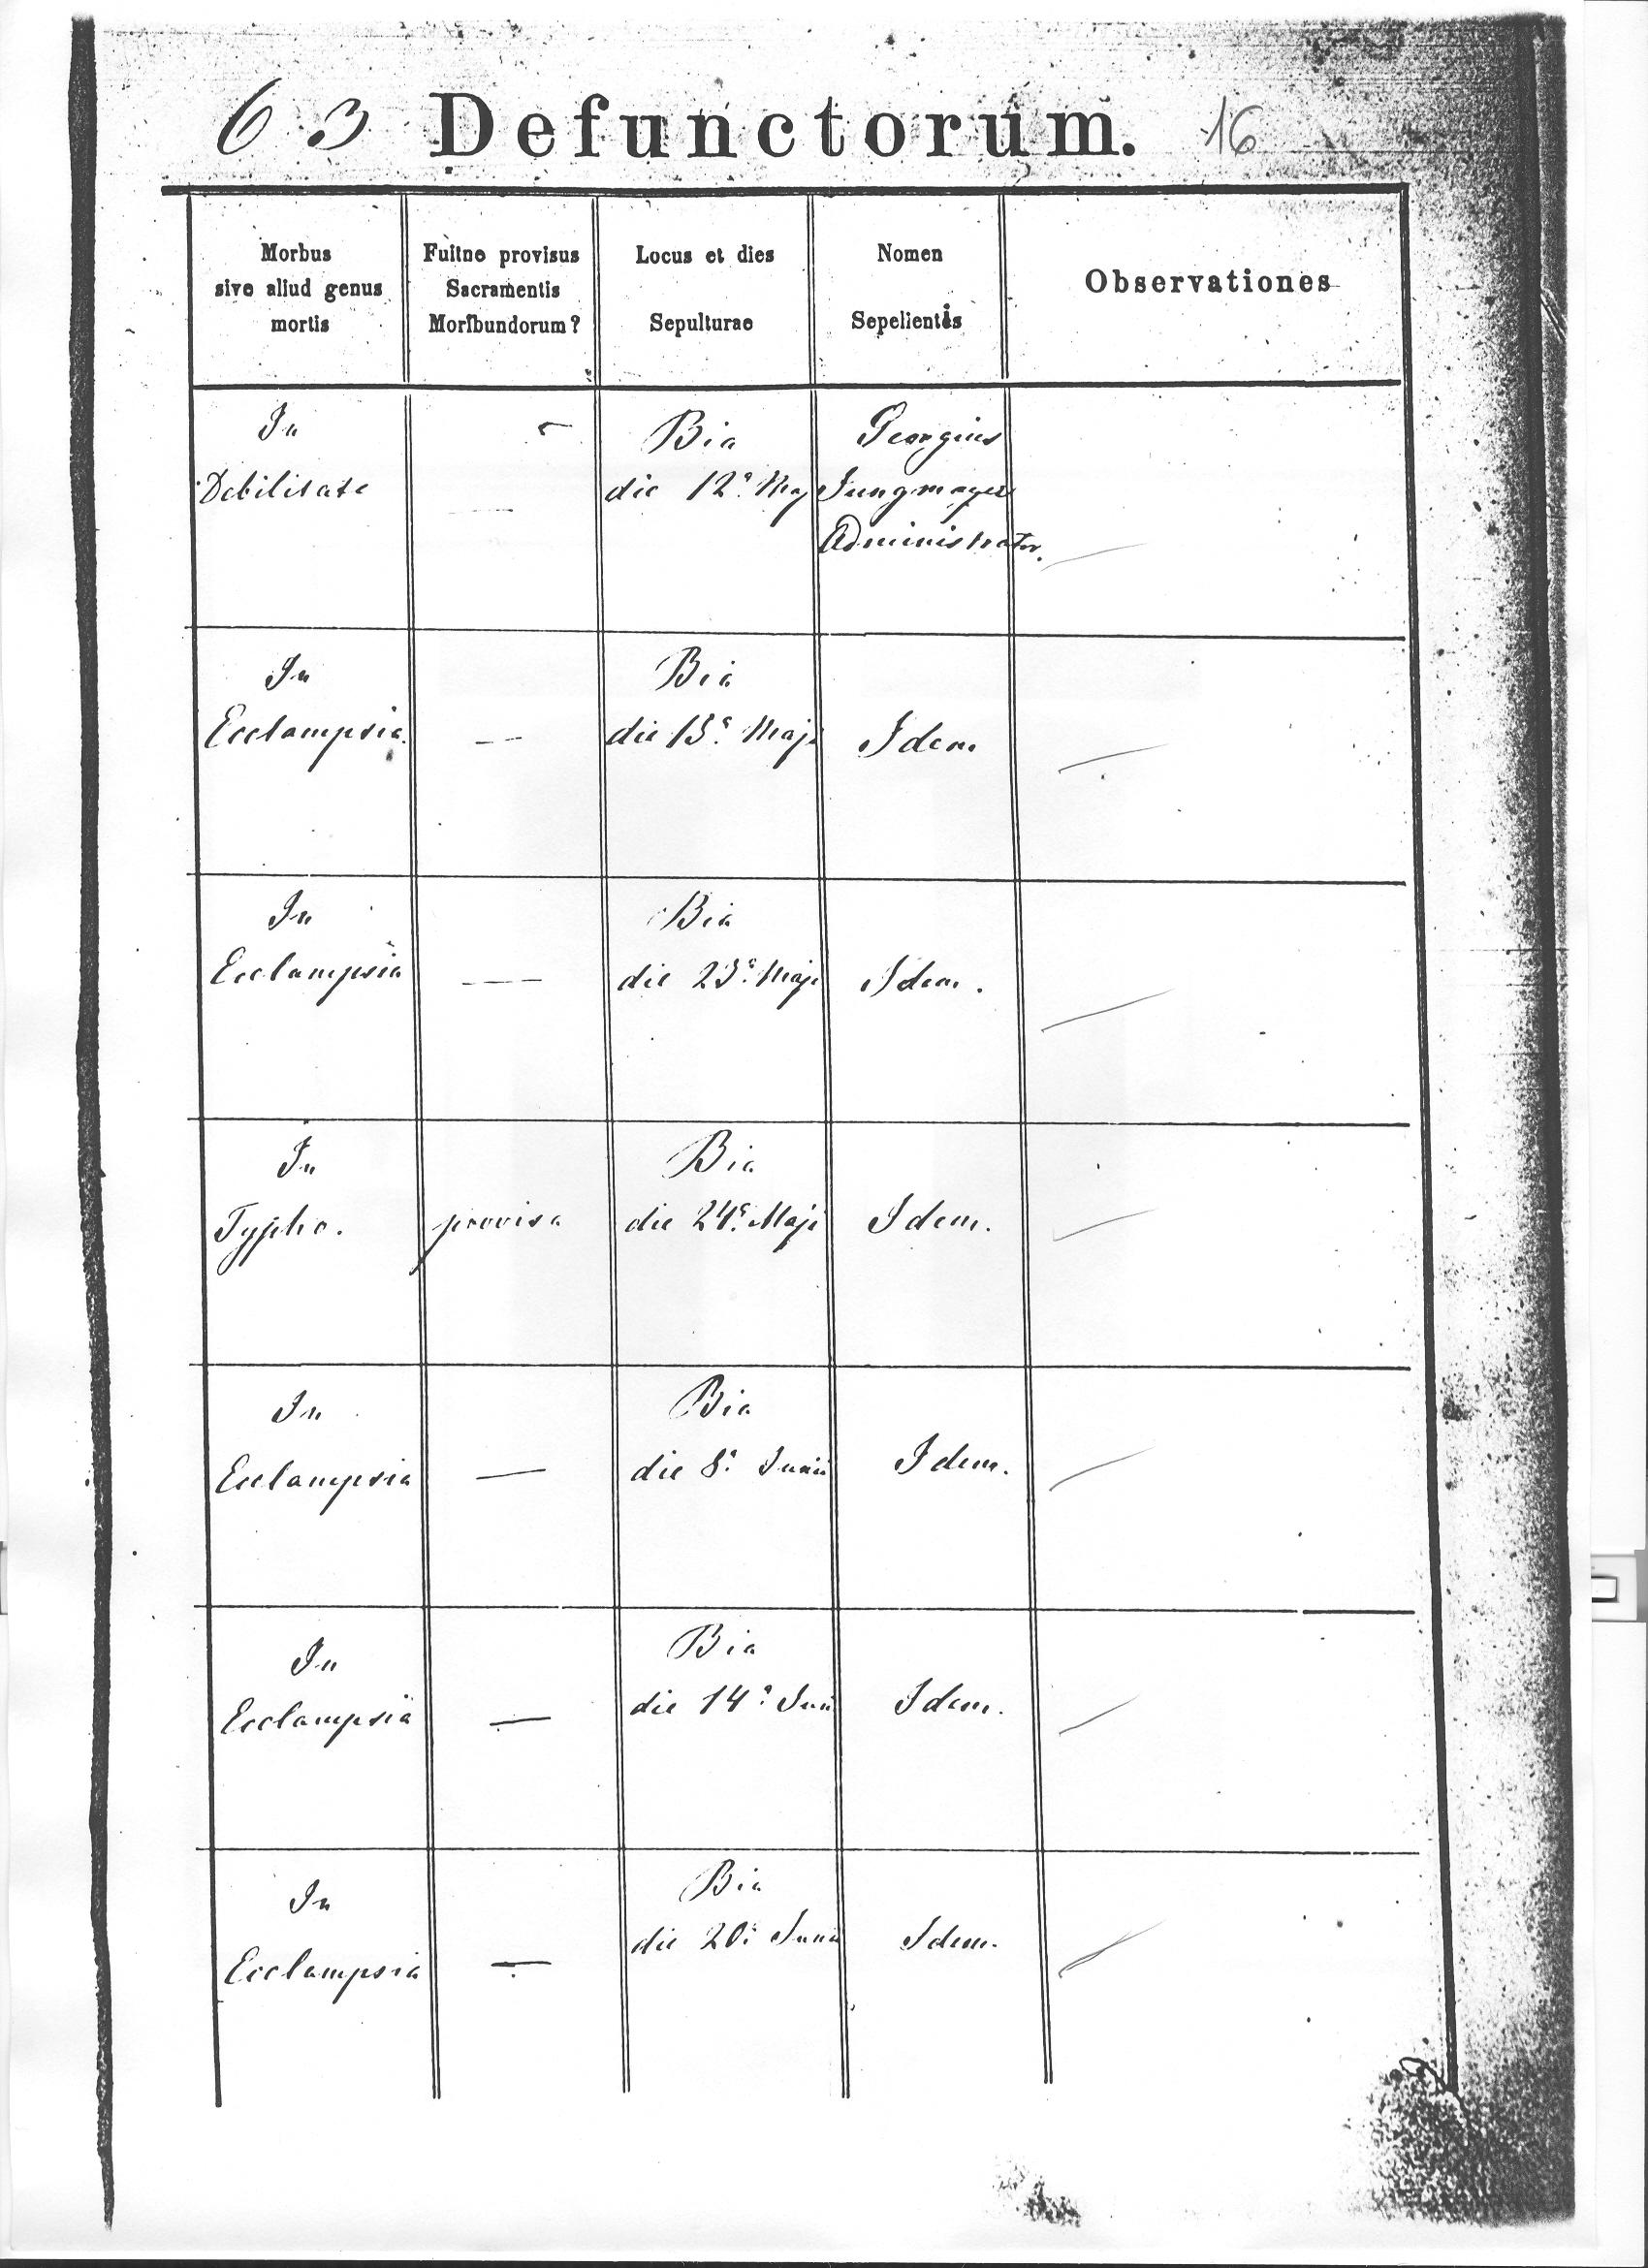 63 Defunctorum. 16
Morbus
sive aliud genus
mortis
Fuitne provisus
Sacramentis
Moribundorum?
Locus et dies
Sepulturae
Nomen
Sepelientis
Observationes
In
Debilitate
—
Bia
die 12ª Maj
Georgius
Jungmayer
Administrator.
In
Ecclampsia.
—
Bia
die 13ª Maji
Idem
In
Ecclampsia
—
Bia
die 23ª Maji
Idem.
In
Typho.
provisa
Bia
die 24ª Maji
Idem.
In
Ecclampsia
—
Bia
die 8ª Junii
Idem.
In
Ecclampsia
—
Bia
die 14ª Juni
Idem.
In
Ecclampsia
—
Bia
die 20ª Junii
Idem.